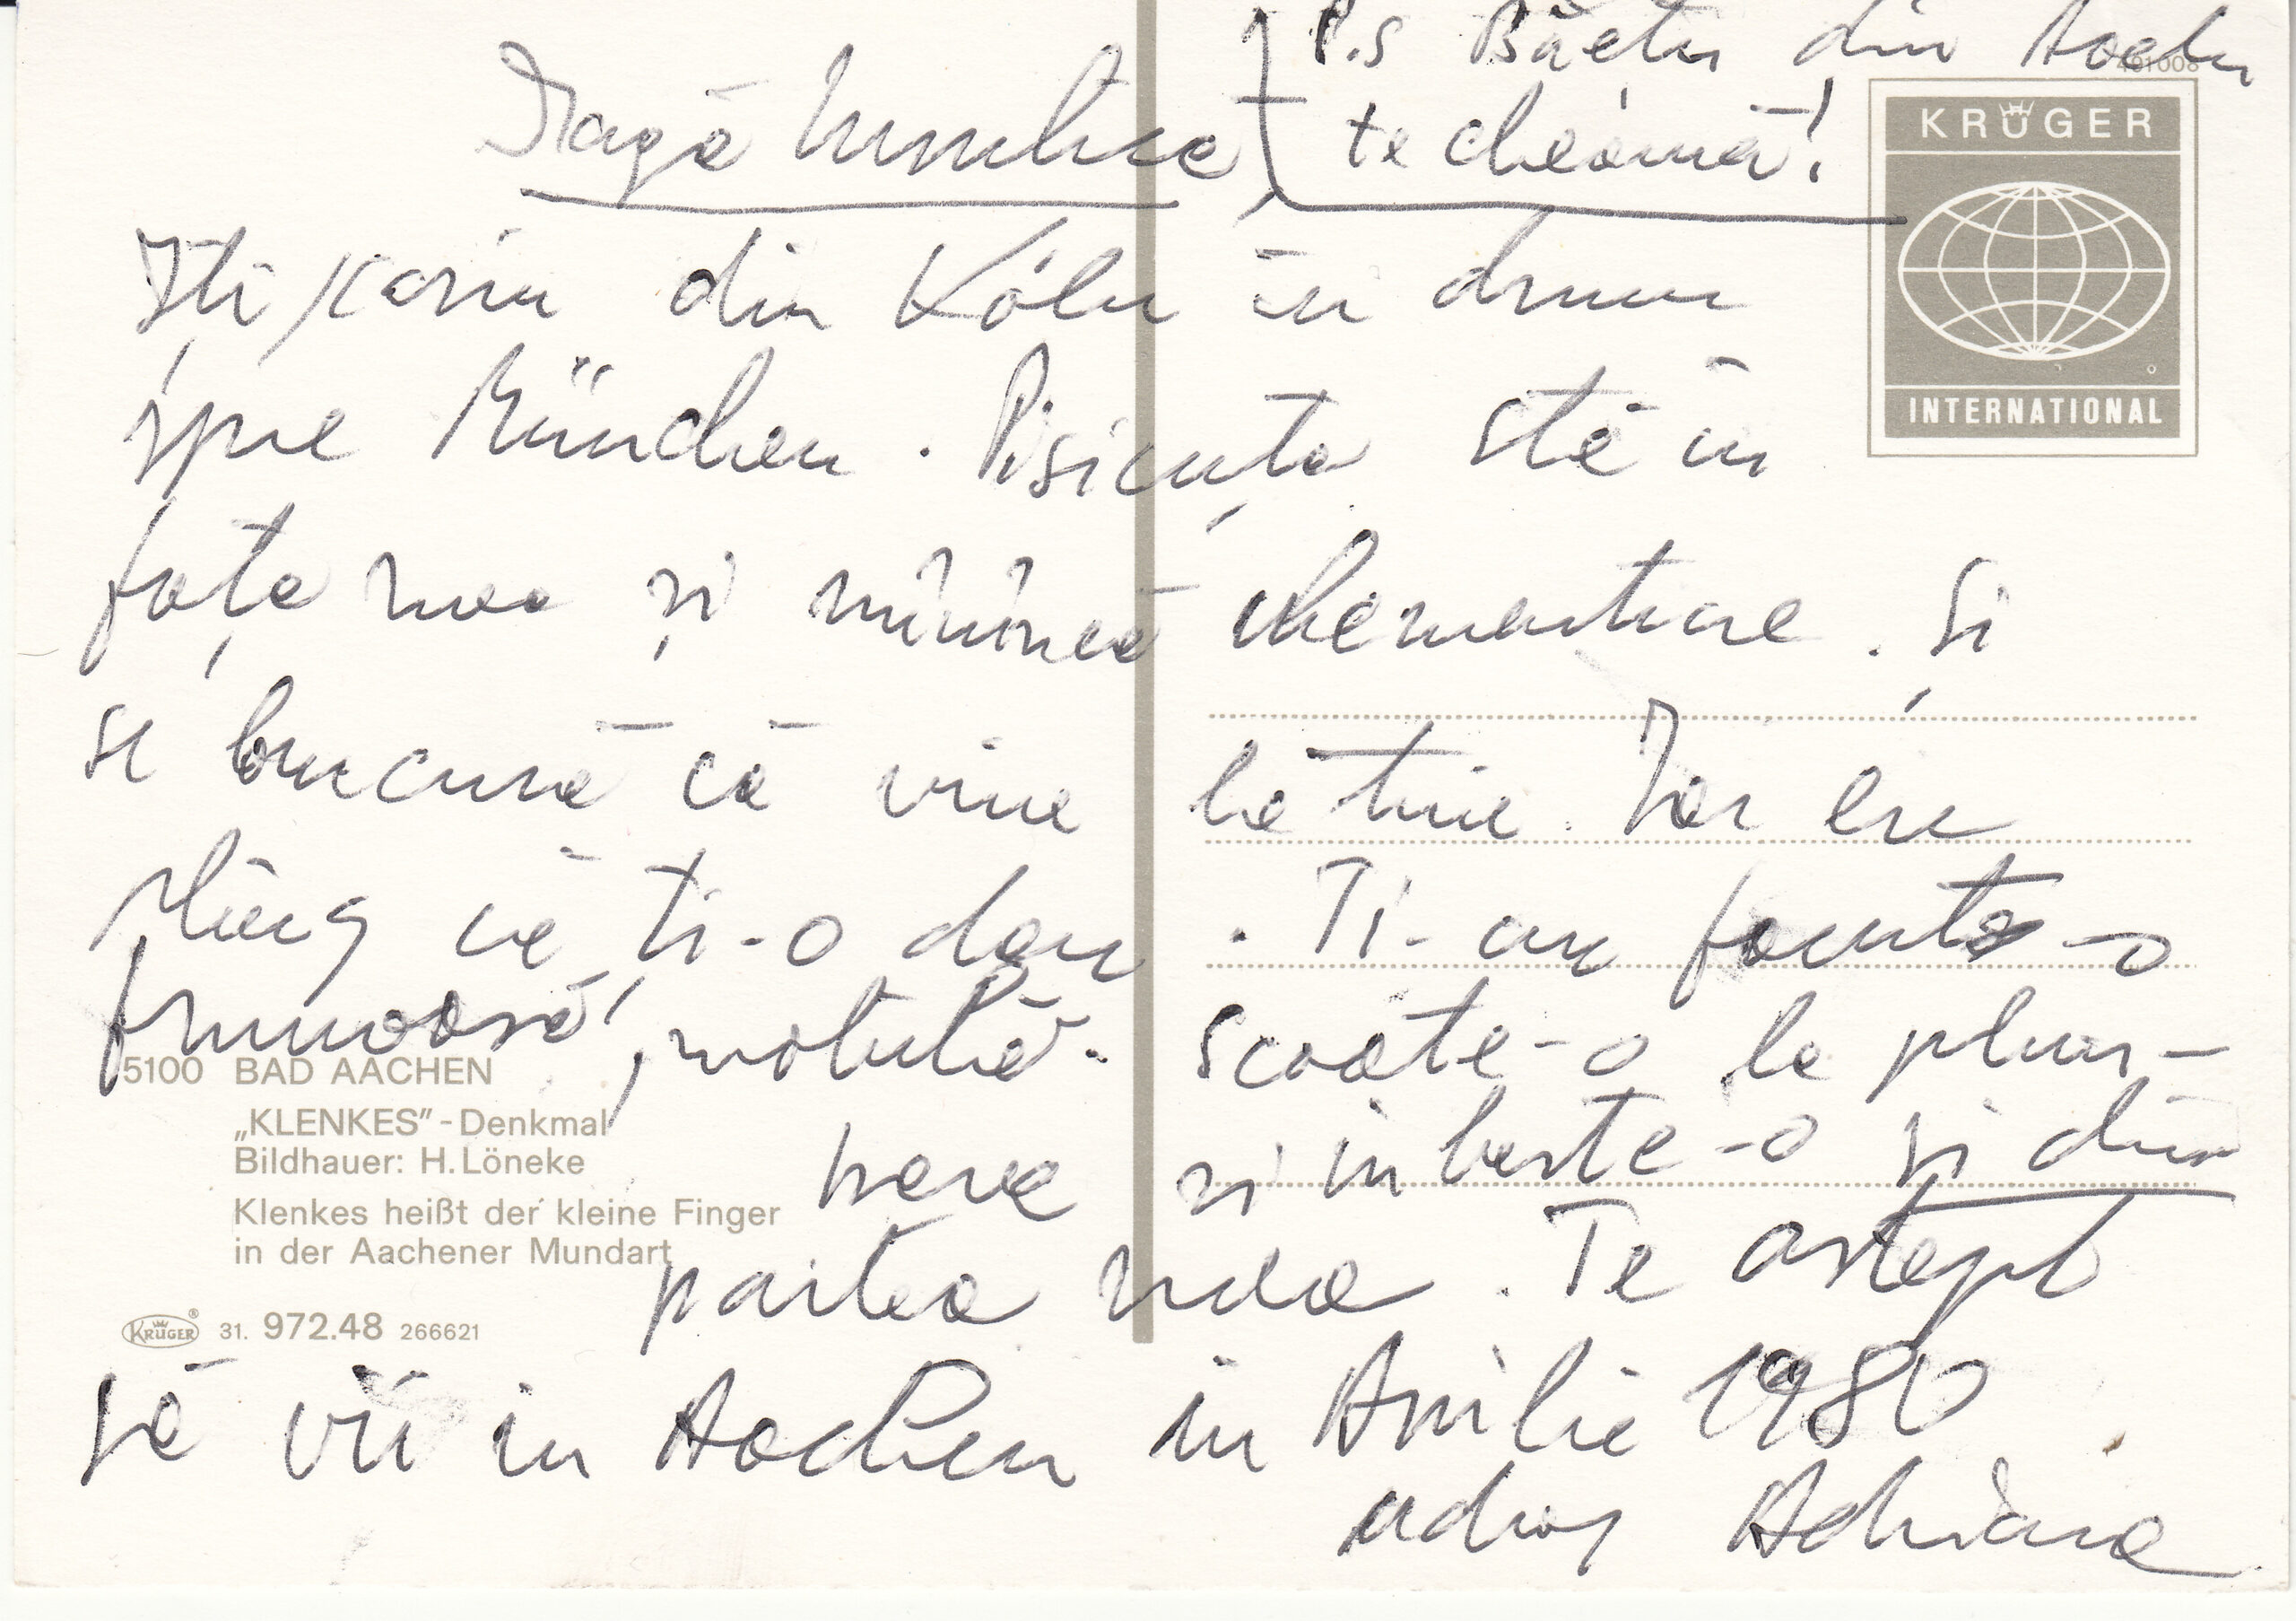 P.s Băetu din Aachen
te cheamă!
Dragă
Îți scriu din Köln în drum
spre München. Pisicuța stă în
fața mea și mănîncă clementine. Și
se bucură că vine la tine. Iar eu
plîng că ți-o dau. Ți-am facut-o
frumoasă, scoate-o la plim-
bare și iubește-o și din
partea mea. Te aștept
să vii in Aachen in Aprilie 1980
Adriana
491008
KRÜGER
INTERNATIONAL
5100 BAD AACHEN
„KLENKES”-Denkmal
Bildhauer: H. Löneke
Klenkes heißt der kleine Finger
in der Aachener Mundart
KRÜGER® 31. 972.48 266621